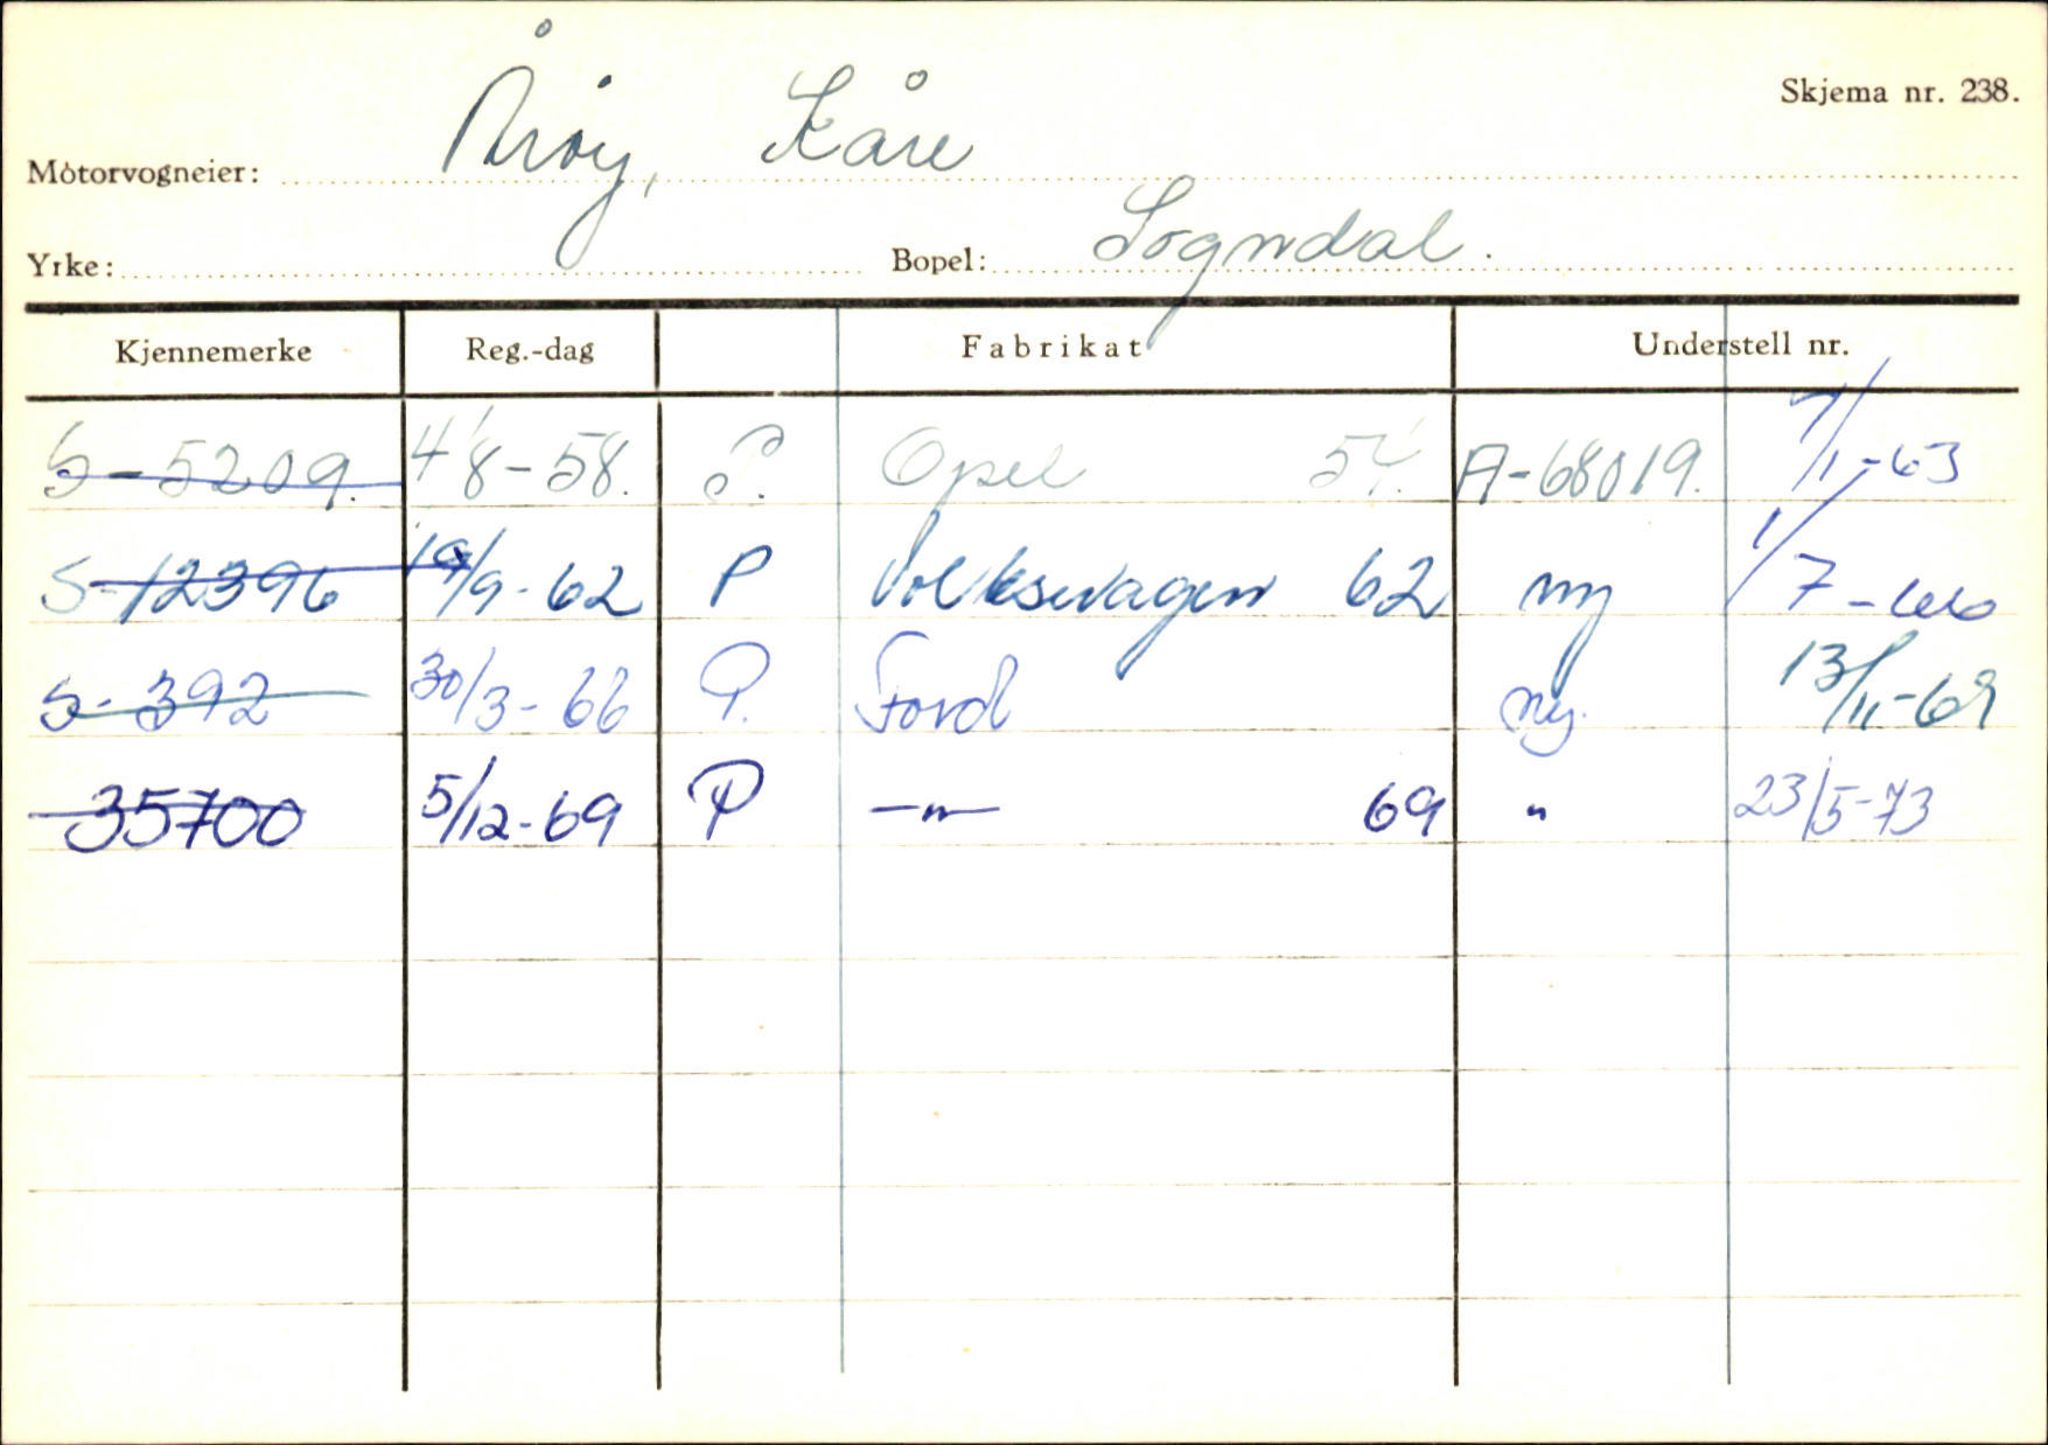 Skjema nr. 238.
Motorvogneier: Årøy, Kåre
Yrke: Bopel: Sogndal.
Kjennemerke Reg.-dag Fabrikat Understell nr.
S-5209. 4/8-58. P. Opel 54. A-68019. 7/1-63
S-12396 19/9-62 P Volkswagen 62 ny 1/7-66
S-392 30/3-66 P. Ford ny. 13/11-69
35700 5/12-69 P —"— 69 " 23/5-73